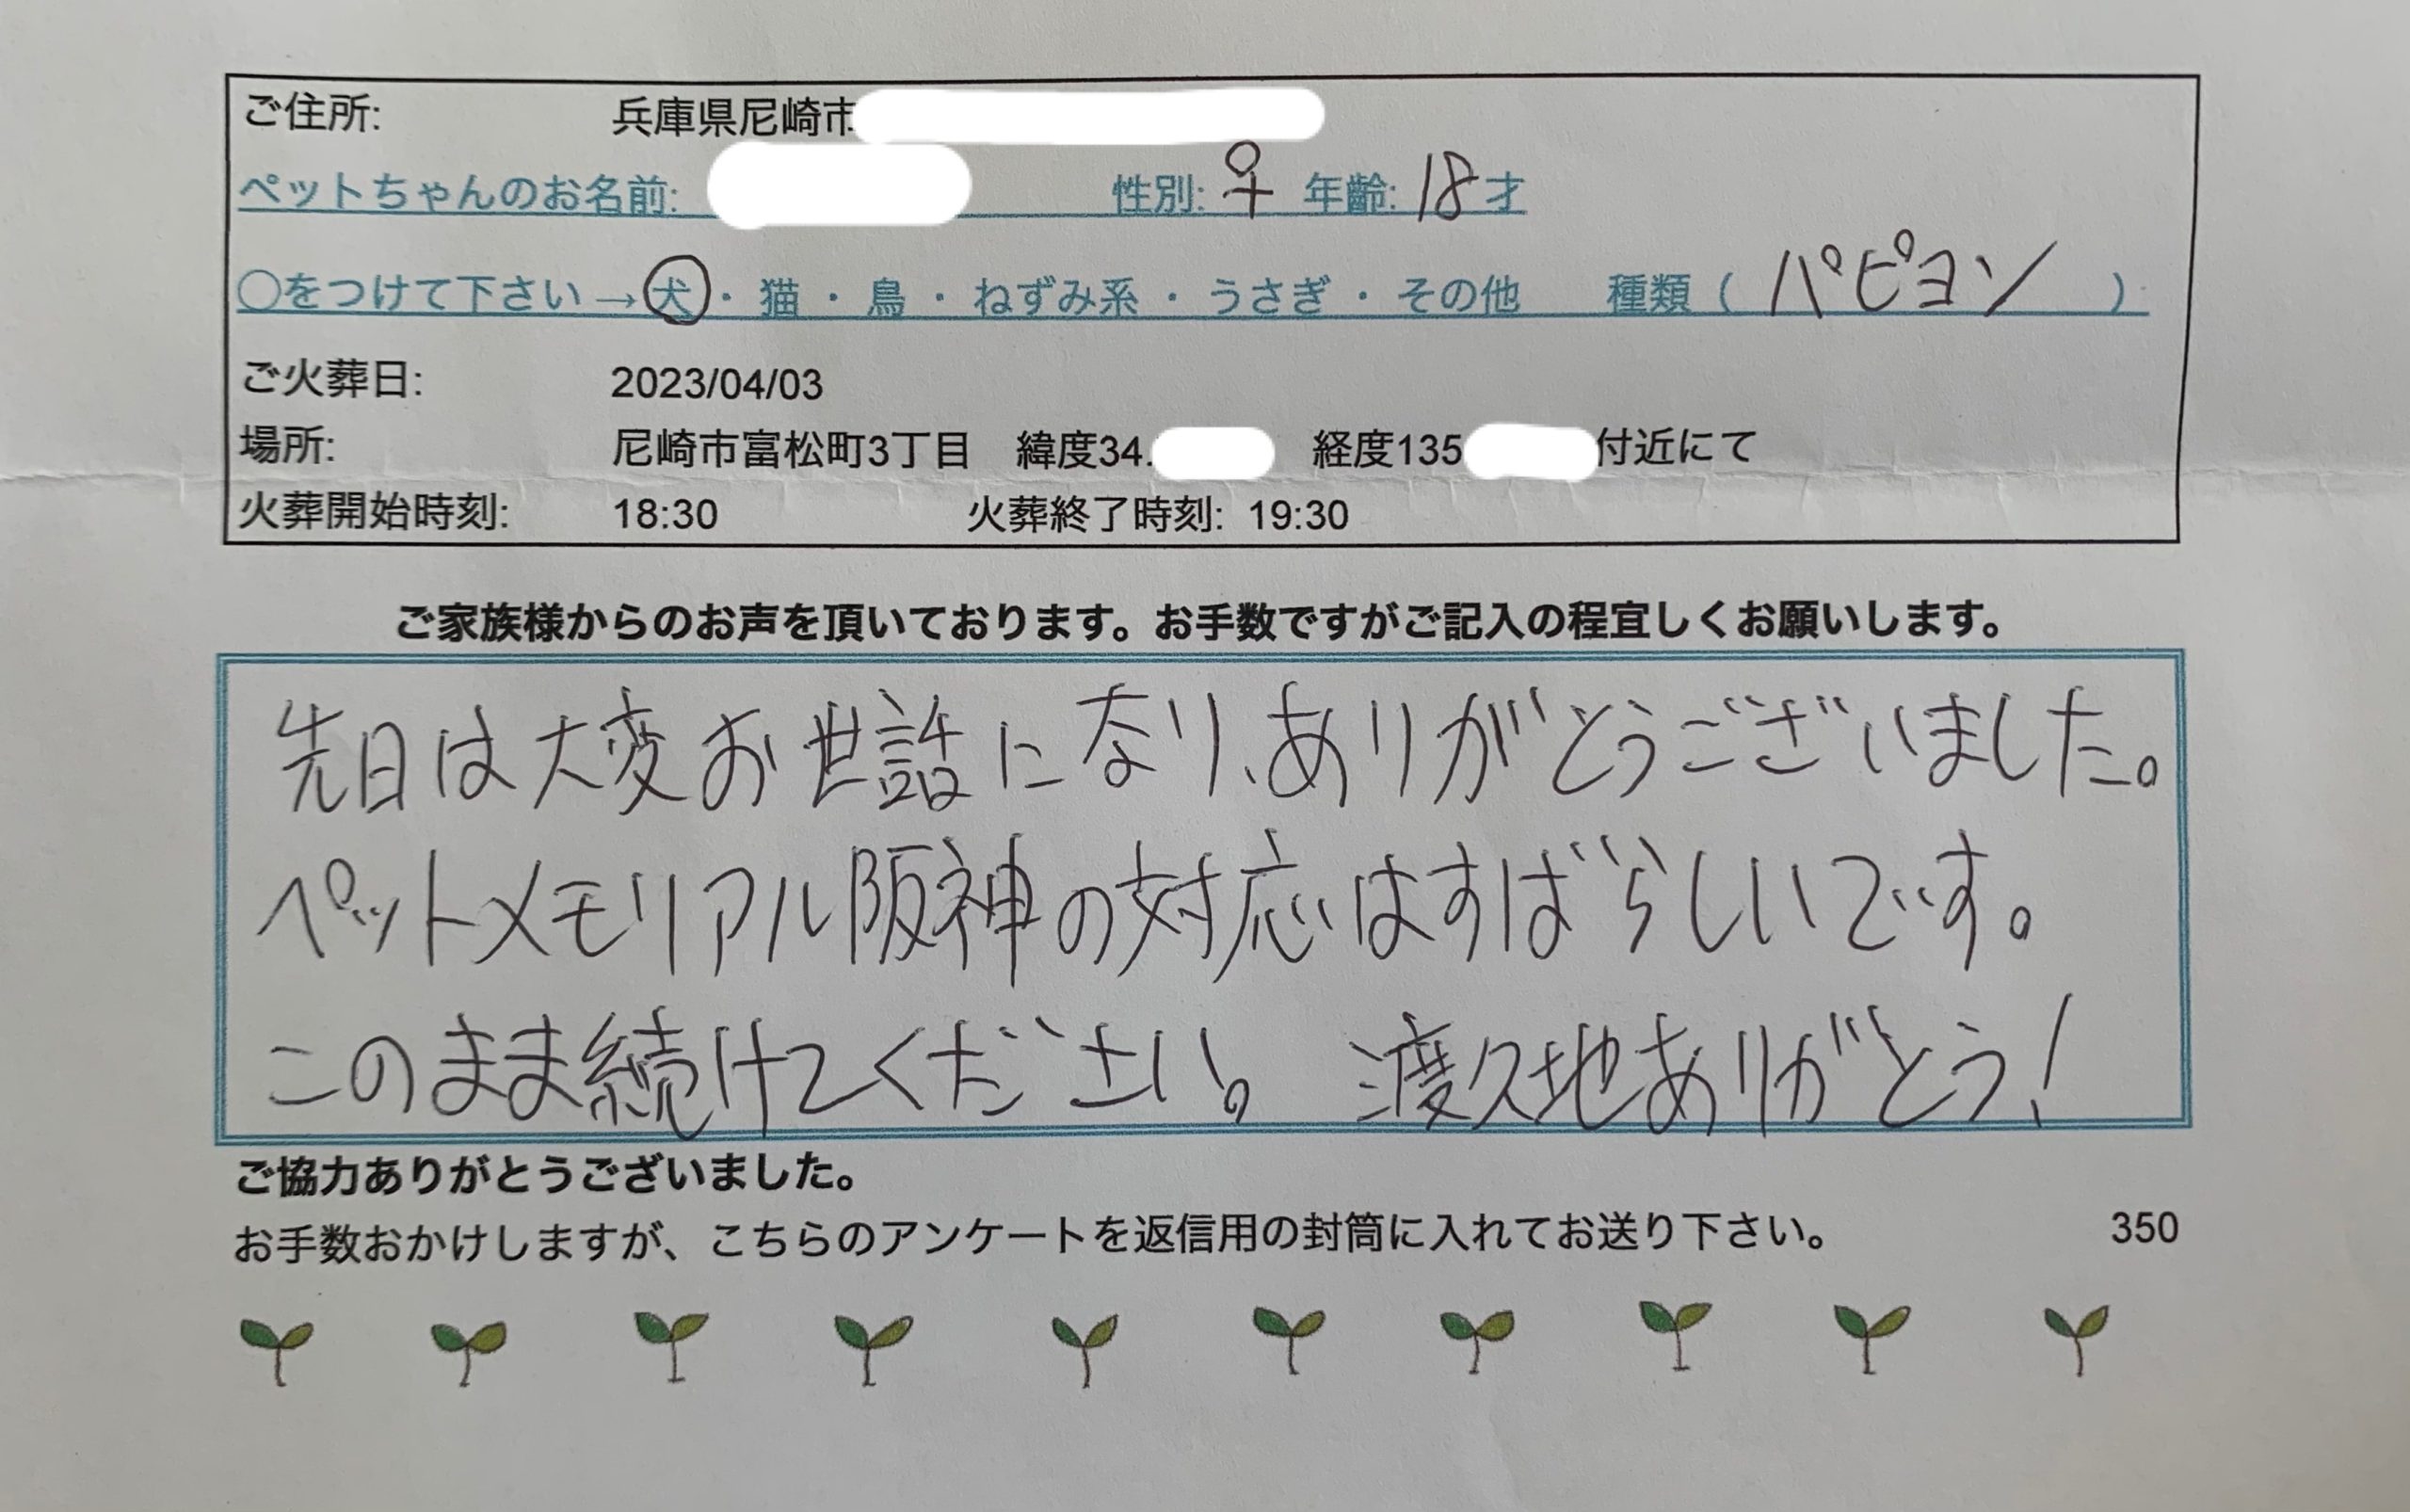 ご住所: 兵庫県尼崎市
ペットちゃんのお名前: 性別: ♀ 年齢: 18才
〇をつけて下さい→犬・猫・鳥・ねずみ系・うさぎ・その他 種類（パピヨン）
ご火葬日: 2023/04/03
場所: 尼崎市富松町3丁目 緯度34. 経度135 付近にて
火葬開始時刻: 18:30 火葬終了時刻: 19:30
ご家族様からのお声を頂いております。お手数ですがご記入の程宜しくお願いします。
先日は大変お世話になり、ありがとうございました。
ペットメモリアル阪神の対応はすばらしいです。
このまま続けてください。 渡久地ありがとう!
ご協力ありがとうございました。
お手数おかけしますが、こちらのアンケートを返信用の封筒に入れてお送り下さい。 350